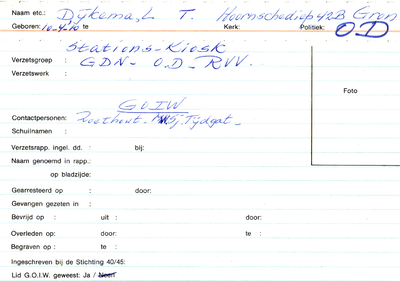 Naam etc.: Dijkema, L T. Hoornschediep 42B Gron
Geboren: 10-4-'10 te Kerk: Politiek: OD
Stations-Kiosk
Verzetsgroep : GDN - O.D - RVV.
Verzetswerk :
Foto
GOIW
Contactpersonen: Tijdgat
Schuilnaam :
Verzetsrapp. ingel. dd. : bij:
Naam genoemd in rapp.:
op bladzijde:
Gearresteerd op : door:
Gevangen gezeten in :
Bevrijd op : uit : door:
Overleden op: door: te :
Begraven op : te :
Ingeschreven bij de Stichting 40/45:
Lid G.O.I.W. geweest: Ja / Neen